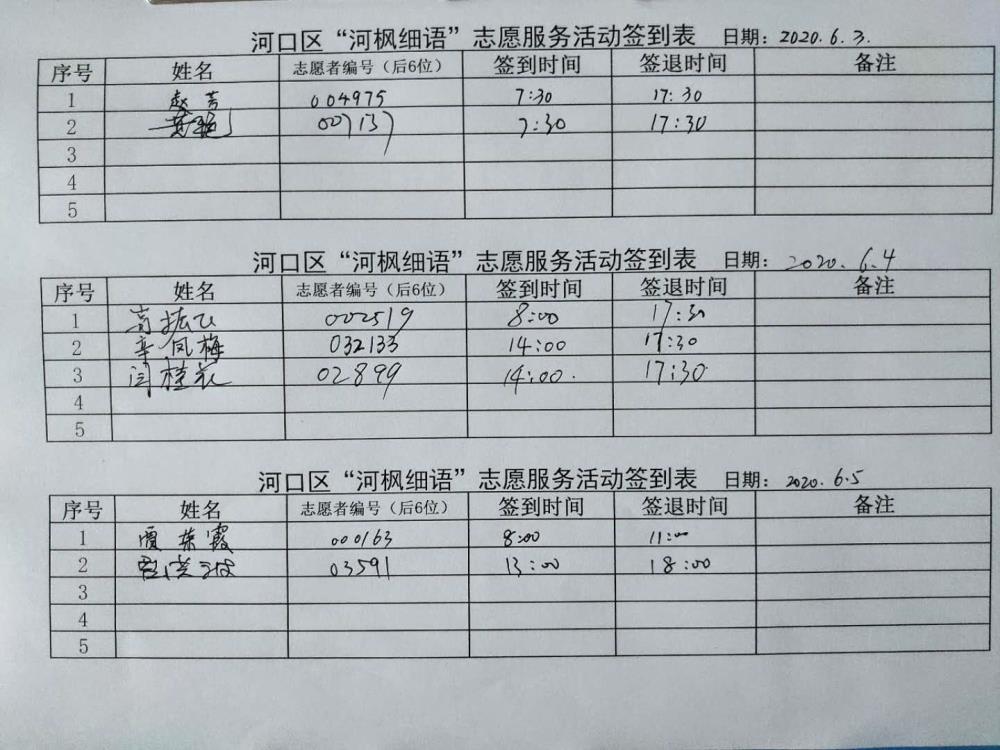 河口区“河枫细语”志愿服务活动签到表 日期：2020.6.3.
序号 姓名 志愿者编号（后6位） 签到时间 签退时间 备注
1 赵芳 004975 7:30 17:30
2 007137 7:30 17:30
3
4
5
河口区“河枫细语”志愿服务活动签到表 日期：2020.6.4
序号 姓名 志愿者编号（后6位） 签到时间 签退时间 备注
1 002519 8:00 17:30
2 辛凤梅 032133 14:00 17:30
3 闫桂花 02899 14:00. 17:30
4
5
河口区“河枫细语”志愿服务活动签到表 日期：2020.6.5
序号 姓名 志愿者编号（后6位） 签到时间 签退时间 备注
1 000163 8:00 11:00
2 03591 13:00 18:00
3
4
5